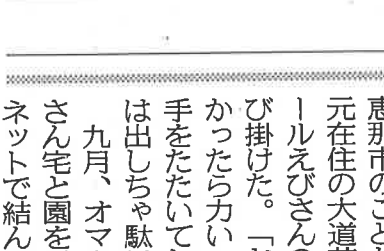 恵那市のこと
元在住の大道芸
ールえびさんの
び掛けた。「
かったら力い
手をたたいて
は出しちゃ駄
九月、オマ
さん宅と園を
ネットで結ん